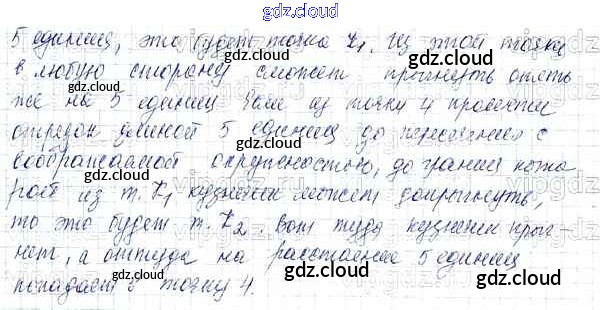 gdz.cloud
5 единиц, это будет точка K₁. Из этой точки
в любую сторону сможет прыгнуть опять
же на 5 единиц. Если из точки 4 провести
отрезок длиной 5 единиц до пересечения с
воображаемой окружностью, до границ кото-
рой из т. K₁ кузнечик может допрыгнуть,
то это будет т. K₂. Вот туда кузнечик прыг-
нет, а оттуда на расстояние 5 единиц
попадает в точку 4.